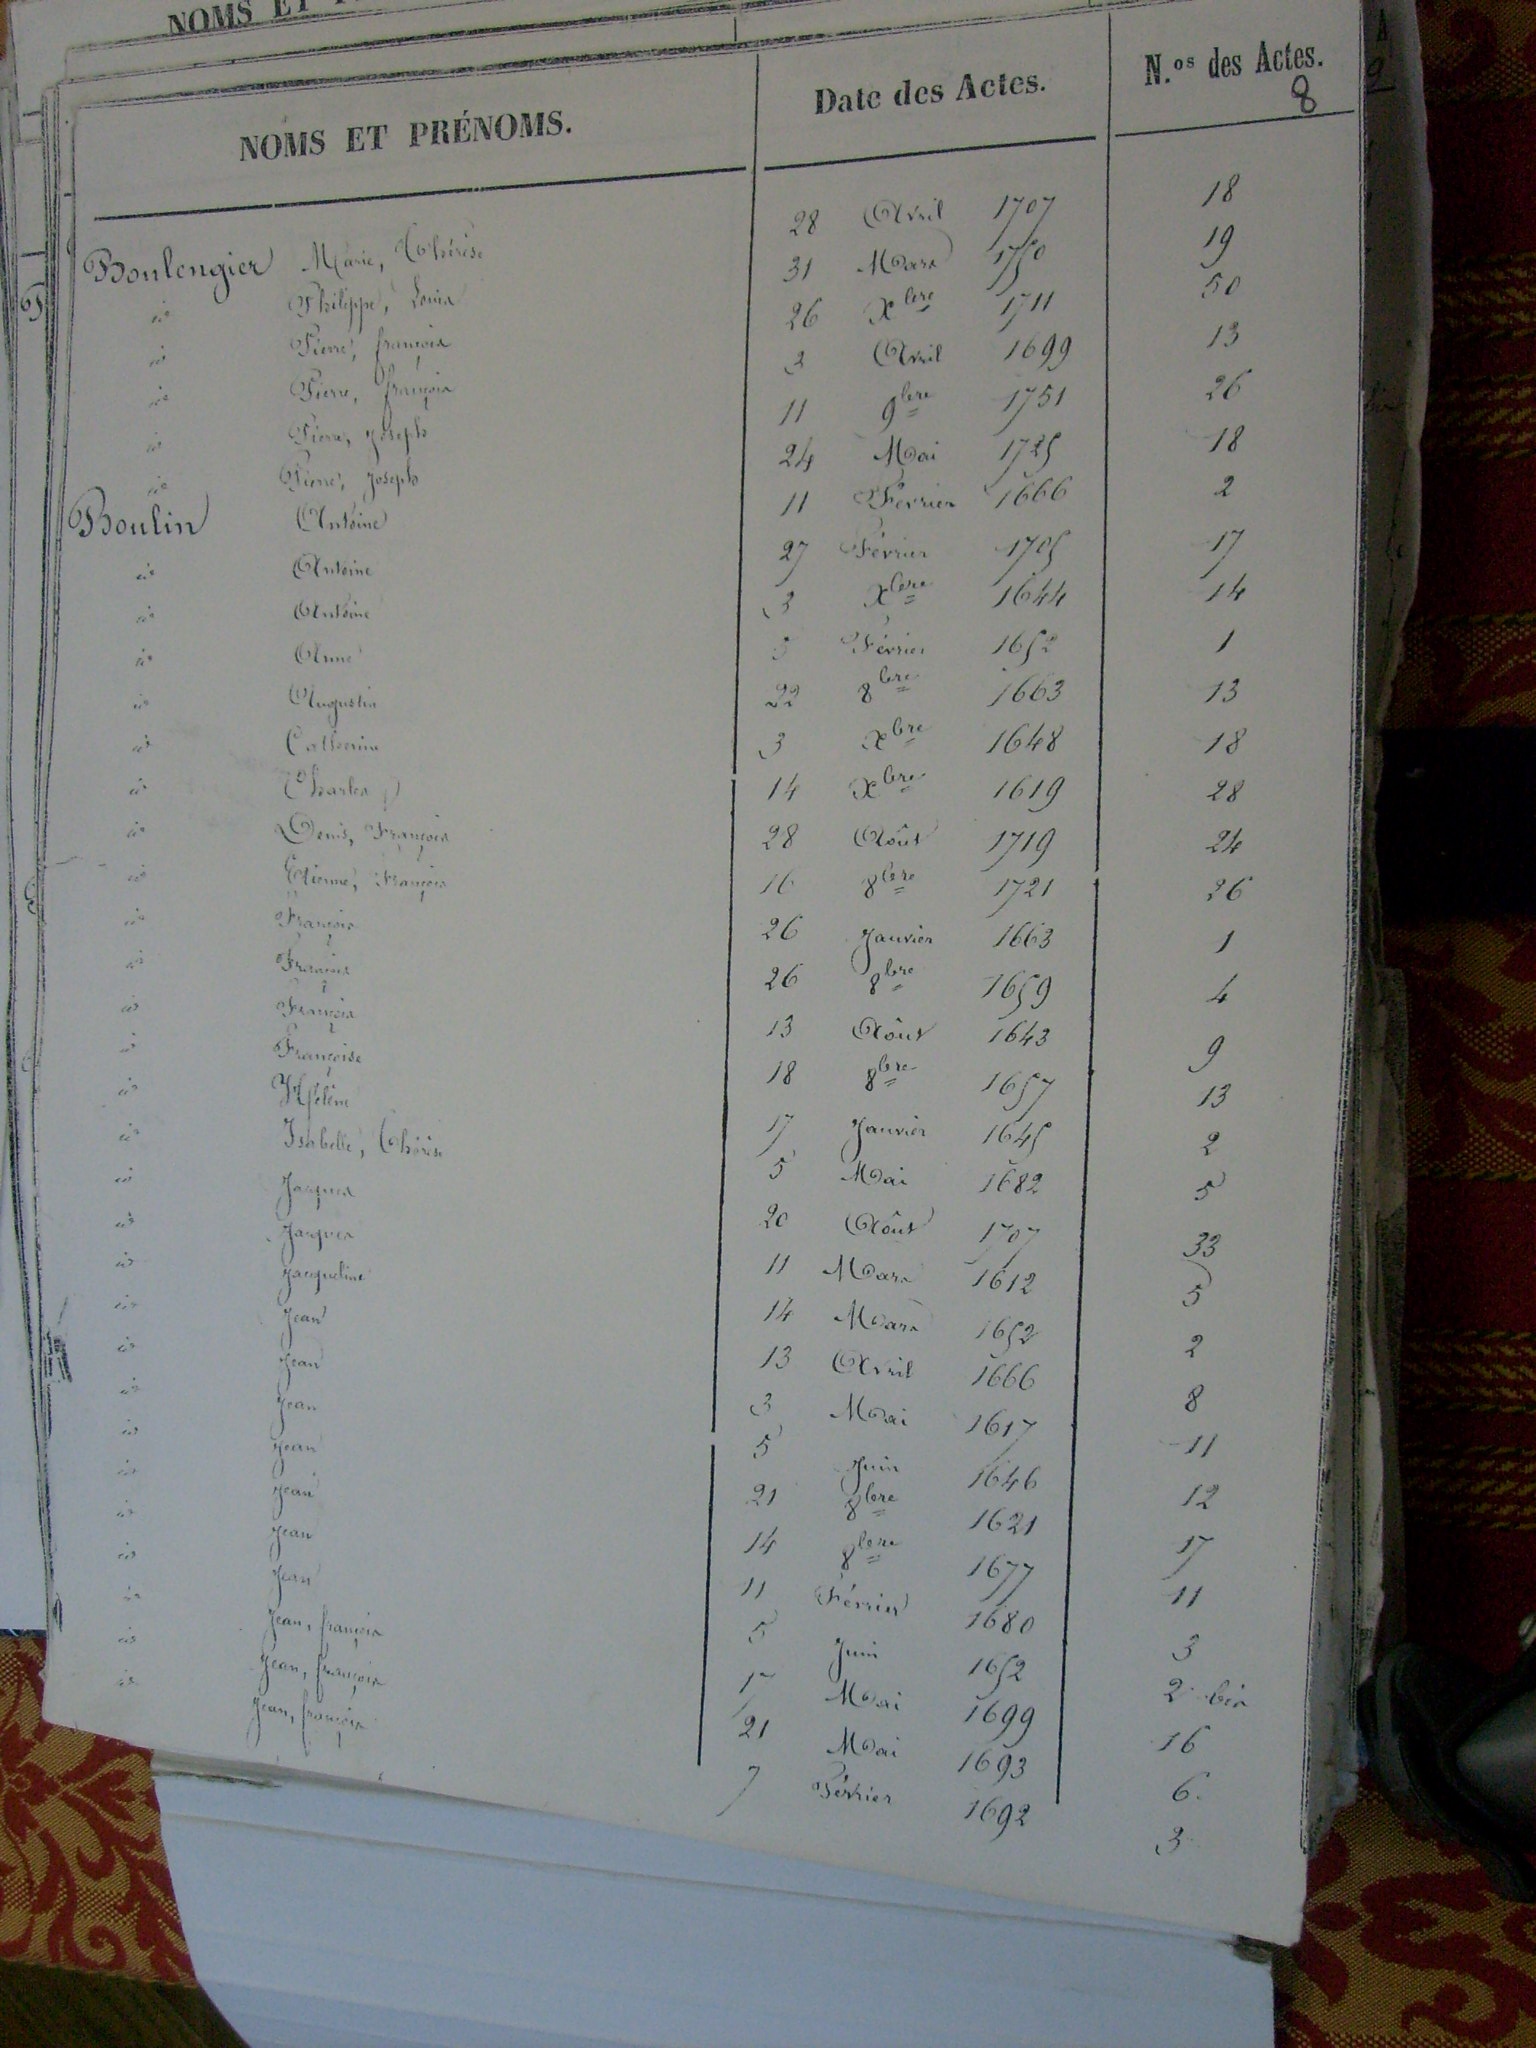 NOMS ET
NOMS ET PRÉNOMS. Date des Actes. N.os des Actes.
8
Boulengier Marie, Thérèse 28 Avril 1707 18
id Philippe, Louis 31 Mars 1750 19
id Pierre, françois 26 Xbre 1711 50
id Pierre, françois 3 Avril 1699 13
id Pierre, Joseph 11 9bre 1751 26
id Pierre, Joseph 24 Mai 1725 18
Boulin Antoine 11 Février 1666 2
id Antoine 27 Février 1705 17
id Antoine 3 Xbre 1644 14
id Anne 5 Février 1652 1
id Augustin 22 8bre 1663 13
id Catherine 3 Xbre 1648 18
id Charles 14 Xbre 1619 28
id Denis, François 28 Août 1719 24
id Etienne, François 16 8bre 1721 26
id François 26 Janvier 1663 1
id François 26 8bre 1659 4
id François 13 Août 1643 9
id Françoise 18 8bre 1657 13
id Hélène 17 Janvier 1645 2
id Isabelle, Thérèse 5 Mai 1682 5
id Jacques 20 Août 1707 33
id Jacques 11 Mars 1612 5
id Jacqueline 14 Mars 1652 2
id Jean 13 Avril 1666 8
id Jean 3 Mai 1617 11
id Jean 5 Juin 1646 12
id Jean 21 8bre 1621 17
id Jean 14 8bre 1677 11
id Jean 11 Février 1680 3
id Jean 5 Juin 1652 2 bis
id Jean, françois 17 Mai 1699 16
id Jean, françois 21 Mai 1693 6
id Jean, françois 7 Février 1692 3